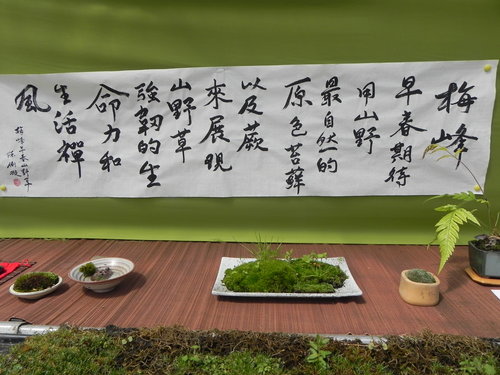 梅峰
早春期待
用山野
最自然的
原色苔蘚
以及蕨
來展現
山野草
強韌的生
命力和
生活禪
風